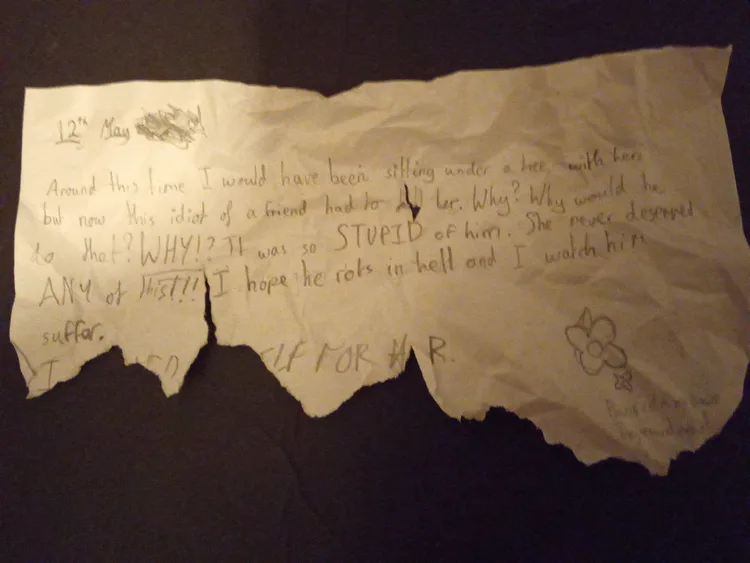 12th May
Around this time I would have been sitting under a tree with here
but now this idiot of a friend had to her. Why? Why would he
do that? WHY!? It was so STUPID of him. She never deserved
ANY of this!!! I hope he rots in hell and I watch him
suffer.
I FOR H R.